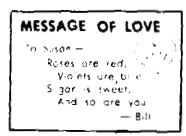 MESSAGE OF LOVE
To Susan —
Roses are red,
Violets are blue
Sugar is sweet,
And so are you
— Bill